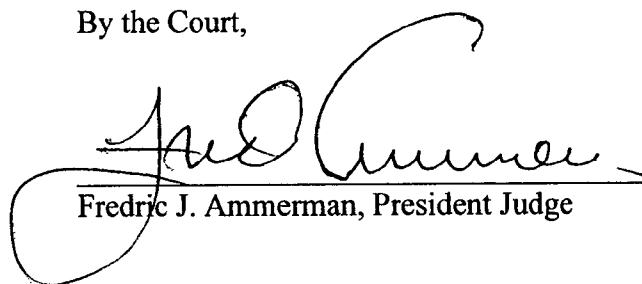 By the Court,
Fred Ammerman
Fredric J. Ammerman, President Judge